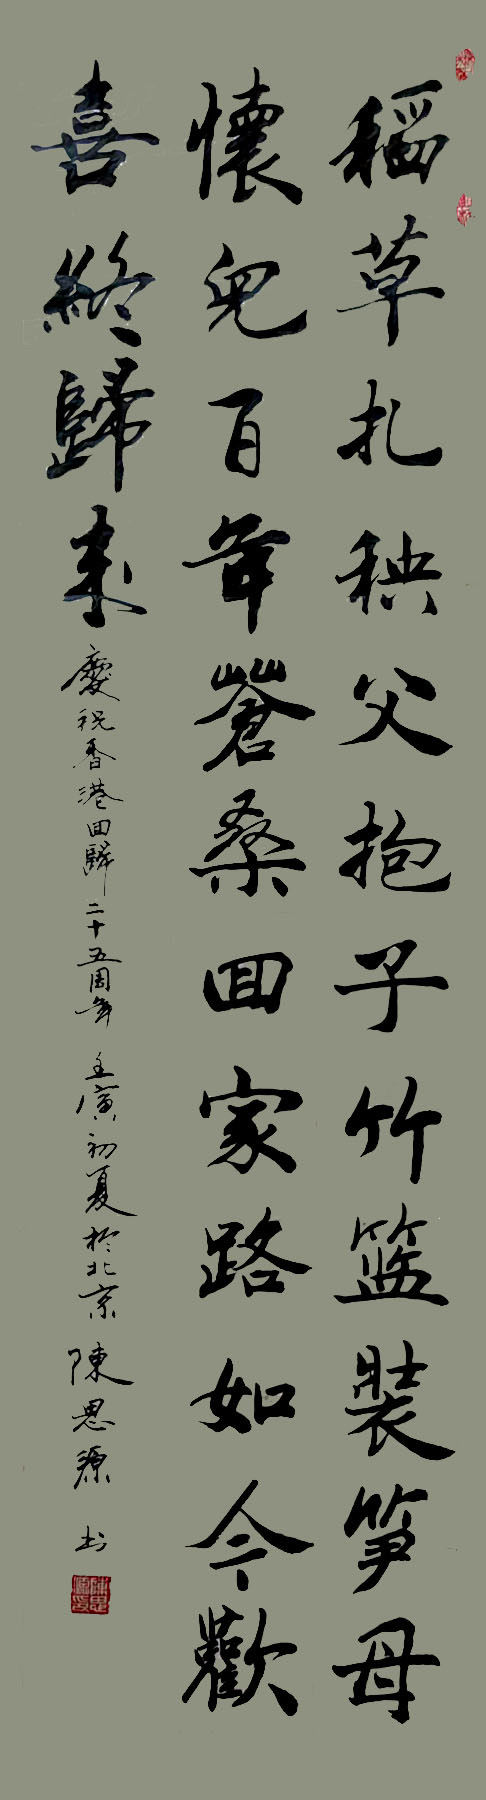 稻草扎秧父抱子竹篮装笋母
懷兒百年蒼桑回家路如今歡
喜終歸来
慶祝香港回歸二十五周年 壬寅初夏於北京 陳思源 书